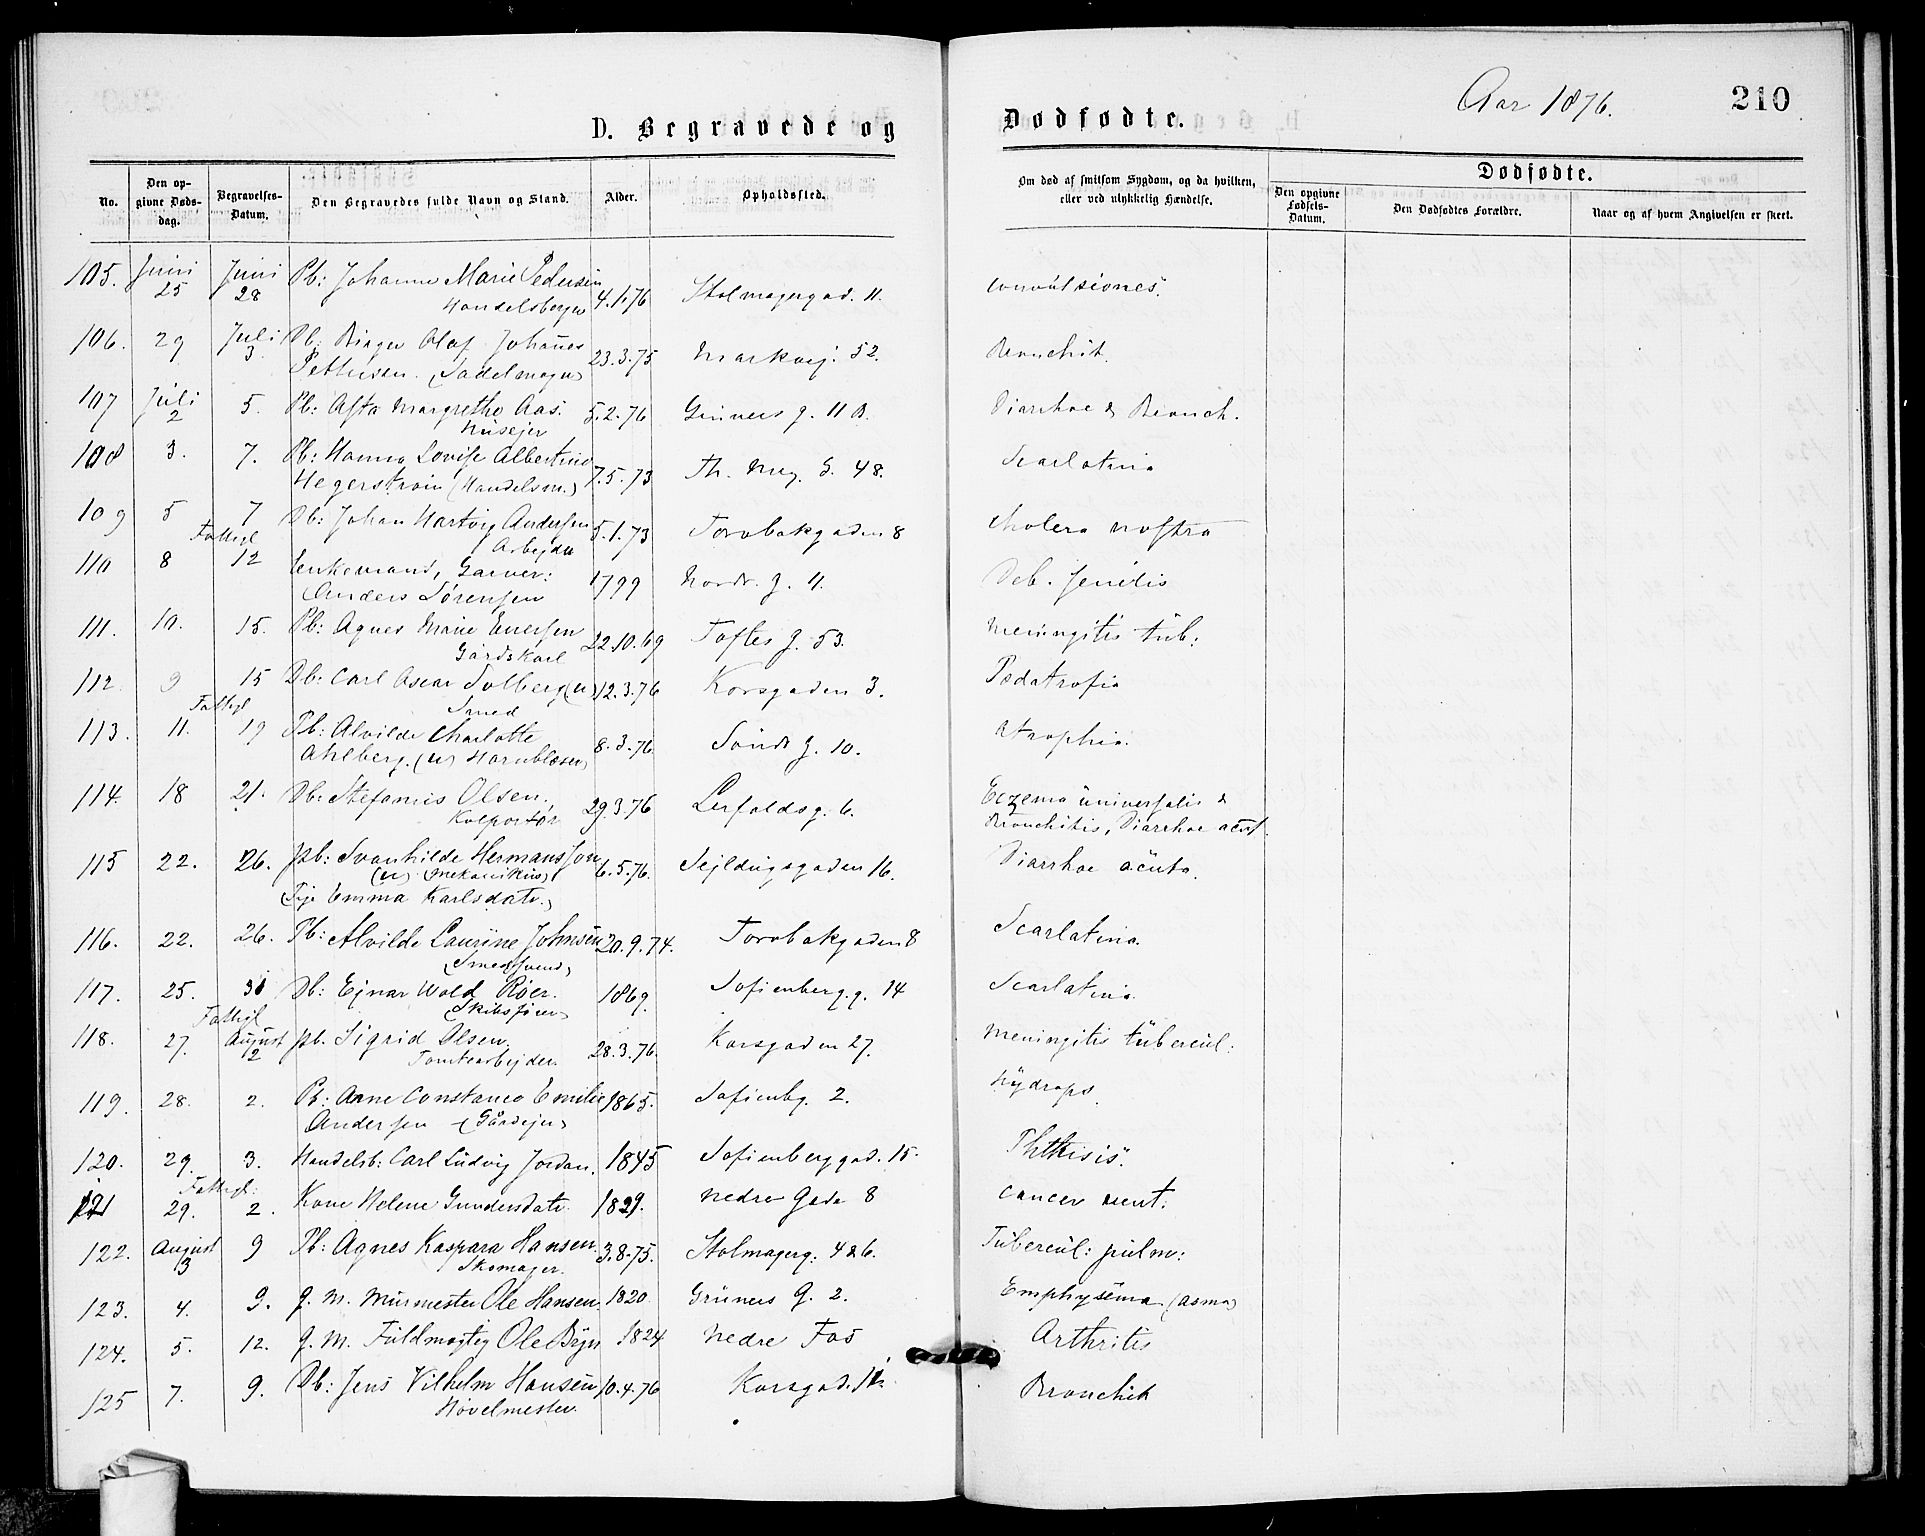 Aar 1876.
210
D. Begravede og
Dødfødte.
No.
Den opgivne Dødsdag.
Begravelses-Datum.
Den Begravedes fulde Navn og Stand.
Alder.
Opholdssted.
Om død af smitsom Sygdom, og da hvilken, eller ved ulykkelig Hændelse.
Dødfødte.
Den opgivne Fødsels-Datum.
Den Dødfødtes Forældre.
Naar og af hvem Angivelsen er skeet.
105. Juni 25 Juni 28 Pb: Johanne Marie Pedersen 4.1.76 Stolmagergad. 11. convulsiones.
Handelsborger
106. 29 Juli 3. Db: Birger Olaf Johanes 23.3.75 Markvej. 52. Bronchit.
Pettersen. (Sadelmager)
107 Juli 2 5. Pb: Asta Margrethe Aas. 5.2.76 Grüners g. 11 B. Diarrhoe & Bronch.
Husejer
108 3. 7. Pb: Hanna Lovise Albertine 7.5.73 Th. Mey. G. 48. Scarlatina
Hegerstrøm (Handelsm.)
109 5 7 Db: Johan Hartvig Andersen 5.1.73 Torvbakgaden 8 Cholera nostra
Arbejder
110 8 Fattigl 12 Enkemand, Garver: 1799 Nordr. g. 11. Deb. senilis
Anders Sørensen
111. 10. 15. Pb: Agnes Marie Enersen 22.10.69 Toftes g. 53. Meningitis tub:
Gårdskarl
112. 9 15 Db: Carl Oscar Solberg (u) 12.3.76 Korsgaden 3. Pædatrofia
Smed
113. 11. Fattigl 19 Pb: Alvilde Charlotte 8.3.76 Søndr g. 10. Atrophia.
Ahlberg. (u) Hornblæser
114. 18 21. Db: Stefanus Olsen. 29.3.76 Lerfaldsg. 6. Eczema universalis &
Kolportør Bronchitis, Diarrhoe acut.
115 22. 26. pb: Svanhilde Hermansson 6.5.76. Sejldugsgaden 16. Diarrhoe acuta.
(u) (Mekanikus)
Pige Emma Karlsdatr.
116. 22. 26. Pb: Alvilde Laurine Johnsen 20.9.74. Torvbakgaden 8 Scarlatina.
(Smedsvend)
117. 25. 31 Db: Ejnar Wold Røer. 1869. Sofienberg.g. 14 Scarlatina.
(Skibsfører)
118. 27. Fattigl August 2 pb. Sigrid Olsen. 28.3.76. Korsgaden 27. Meningitis tubercul:
Tomtearbejder.
119. 28. 2. Pb: Anne Constance Emilie 1865. Sofienbg. 2. Hydrops.
Andersen (Gårdejer)
120. 29. 3. Handelsb: Carl Ludvig Jordan. 1845 Sofienberggad. 15. Phthisis.
121 29. Fattigl: 2. Kone Helene Gundersdatr. 1829. Nedre Gade 8 Cancer vent.
122. August 3 9 Pb: Agnes Kaspara Hansen. 3.8.75. Stolmagerg: 4 & 6. Tubercul: pulm:
Skomager.
123. 4. 9. g. M. Murmester Ole Hansen. 1820. Grüners G. 2. Emphysema (asma)
124. 5. 12. g. M. Fuldmægtig Ole Bryn 1824 Nedre Fos Arthritis
125 7. 9. Db: Jens Vilhelm Hansen 10.4.76 Korsgad. 11. Bronchit
Høvelmester.